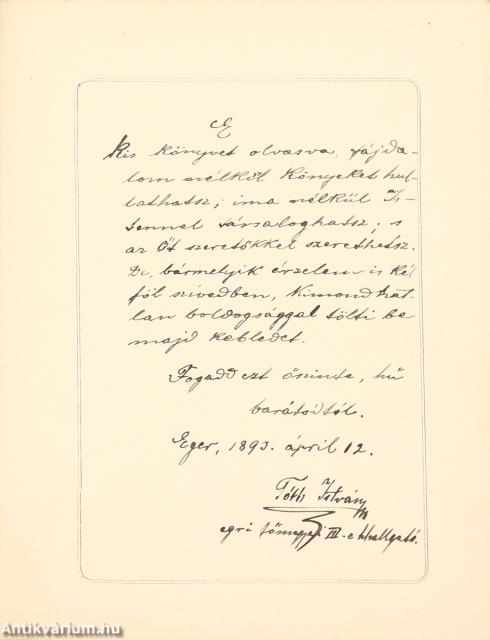 E
kis könyvet olvasva, fájda-
lom nélkül könyeket hul-
lathatsz; ima nélkül Is-
tennel társaloghatsz, s
az Őt szeretőkkel szerethetsz.
De, bármelyik érzelem is kél
föl szívedben, kimondhat-
lan boldogsággal tölti be
majd kebledet.
Fogadd ezt őszinte, hű
barátodtól.
Eger, 1893. április 12.
Tóth István
egri főmegyei III. é. hallgató.
Antikvárium.hu